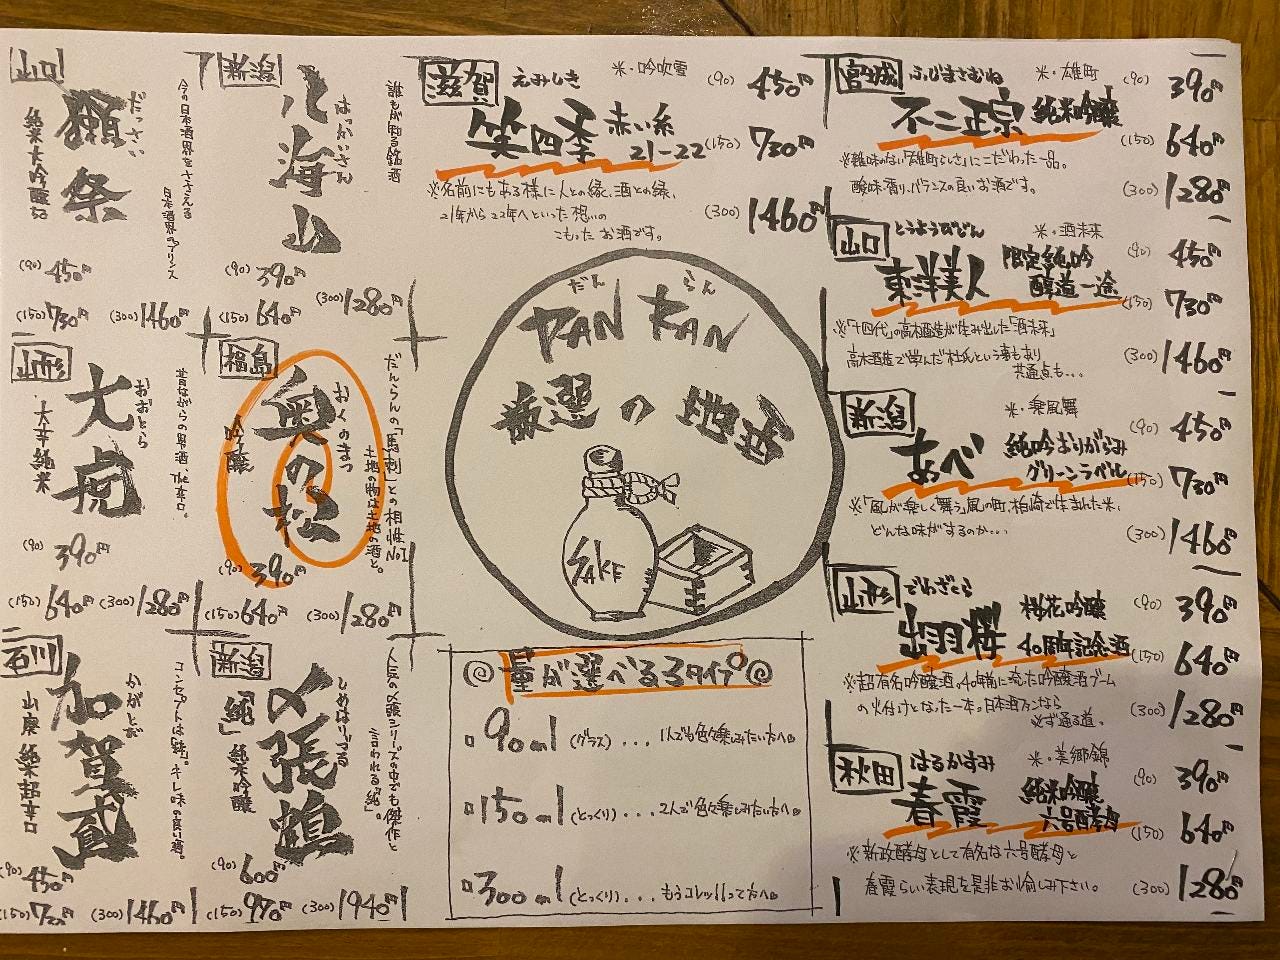 山口
だっさい
獺祭
純米大吟醸50
今の日本酒界をささえる
日本酒界のプリンス
(90) 450円
(150) 730円 (300) 1460円
新潟
はっかいさん
八海山
誰もが知る銘酒
(90) 390円
(150) 640円 (300) 1280円
滋賀
えみしき
米・吟吹雪
笑四季 赤い糸
21-22
※名前にもある様に人との縁、酒との縁、
21年から22年へといった想いの
こもったお酒です。
(90) 450円
(150) 730円
(300) 1460円
宮城
ふじまさむね
米・雄町
不二正宗 純米吟醸
※雑味のない「雄町らしさ」にこだわった一品。
酸味・香り、バランスの良いお酒です。
(90) 390円
(150) 640円
(300) 1280円
山口
とうようびじん
米・酒未来
東洋美人 限定純吟
醇道一途
※「十四代」の高木酒造が生み出した「酒未来」
高木酒造で学んだ杜氏という事もあり
共通点も...
(90) 450円
(150) 730円
(300) 1460円
山形
おおとら
大虎
大辛純米
昔ながらの男酒、The辛口。
(90) 390円
(150) 640円 (300) 1280円
福島
おくのまつ
奥の松
吟醸
だんらんの「馬刺」との相性No1
土地の物は土地の酒と。
(90) 390円
(150) 640円 (300) 1280円
だん らん
DAN RAN
厳選の地酒
SAKE
新潟
米・楽風舞
あべ 純吟おりがらみ
グリーンラベル
※「風が楽しく舞う」風の町、柏崎で生まれた米、
どんな味がするのか...
(90) 450円
(150) 730円
(300) 1460円
山形
でわざくら
出羽桜 桜花吟醸
40周年記念酒
※超有名吟醸酒。40年前に流った吟醸酒ブーム
の火付けとなった一本。日本酒ファンなら
必ず通る道。
(90) 390円
(150) 640円
(300) 1280円
石川
かがとび
加賀鳶
山廃純米超辛口
コンセプトは「粋」。キレ味の良い酒。
(90) 450円
(150) 730円 (300) 1460円
新潟
しめはりつる
〆張鶴
「純」純米吟醸
人気の〆張シリーズの中でも傑作と
言われる「純」。
(90) 600円
(150) 970円 (300) 1940円
量が選べる3タイプ
90ml (グラス)...1人でも色々楽しみたい方へ。
150ml (とっくり)...2人で色々楽しみたい方へ。
300ml (とっくり)...もうコレッッって方へ。
秋田
はるかすみ
米・美郷錦
春霞 純米吟醸
六号酵母
※新政酵母として有名な六号酵母と
春霞らしい表現を是非お愉しみ下さい。
(90) 390円
(150) 640円
(300) 1280円